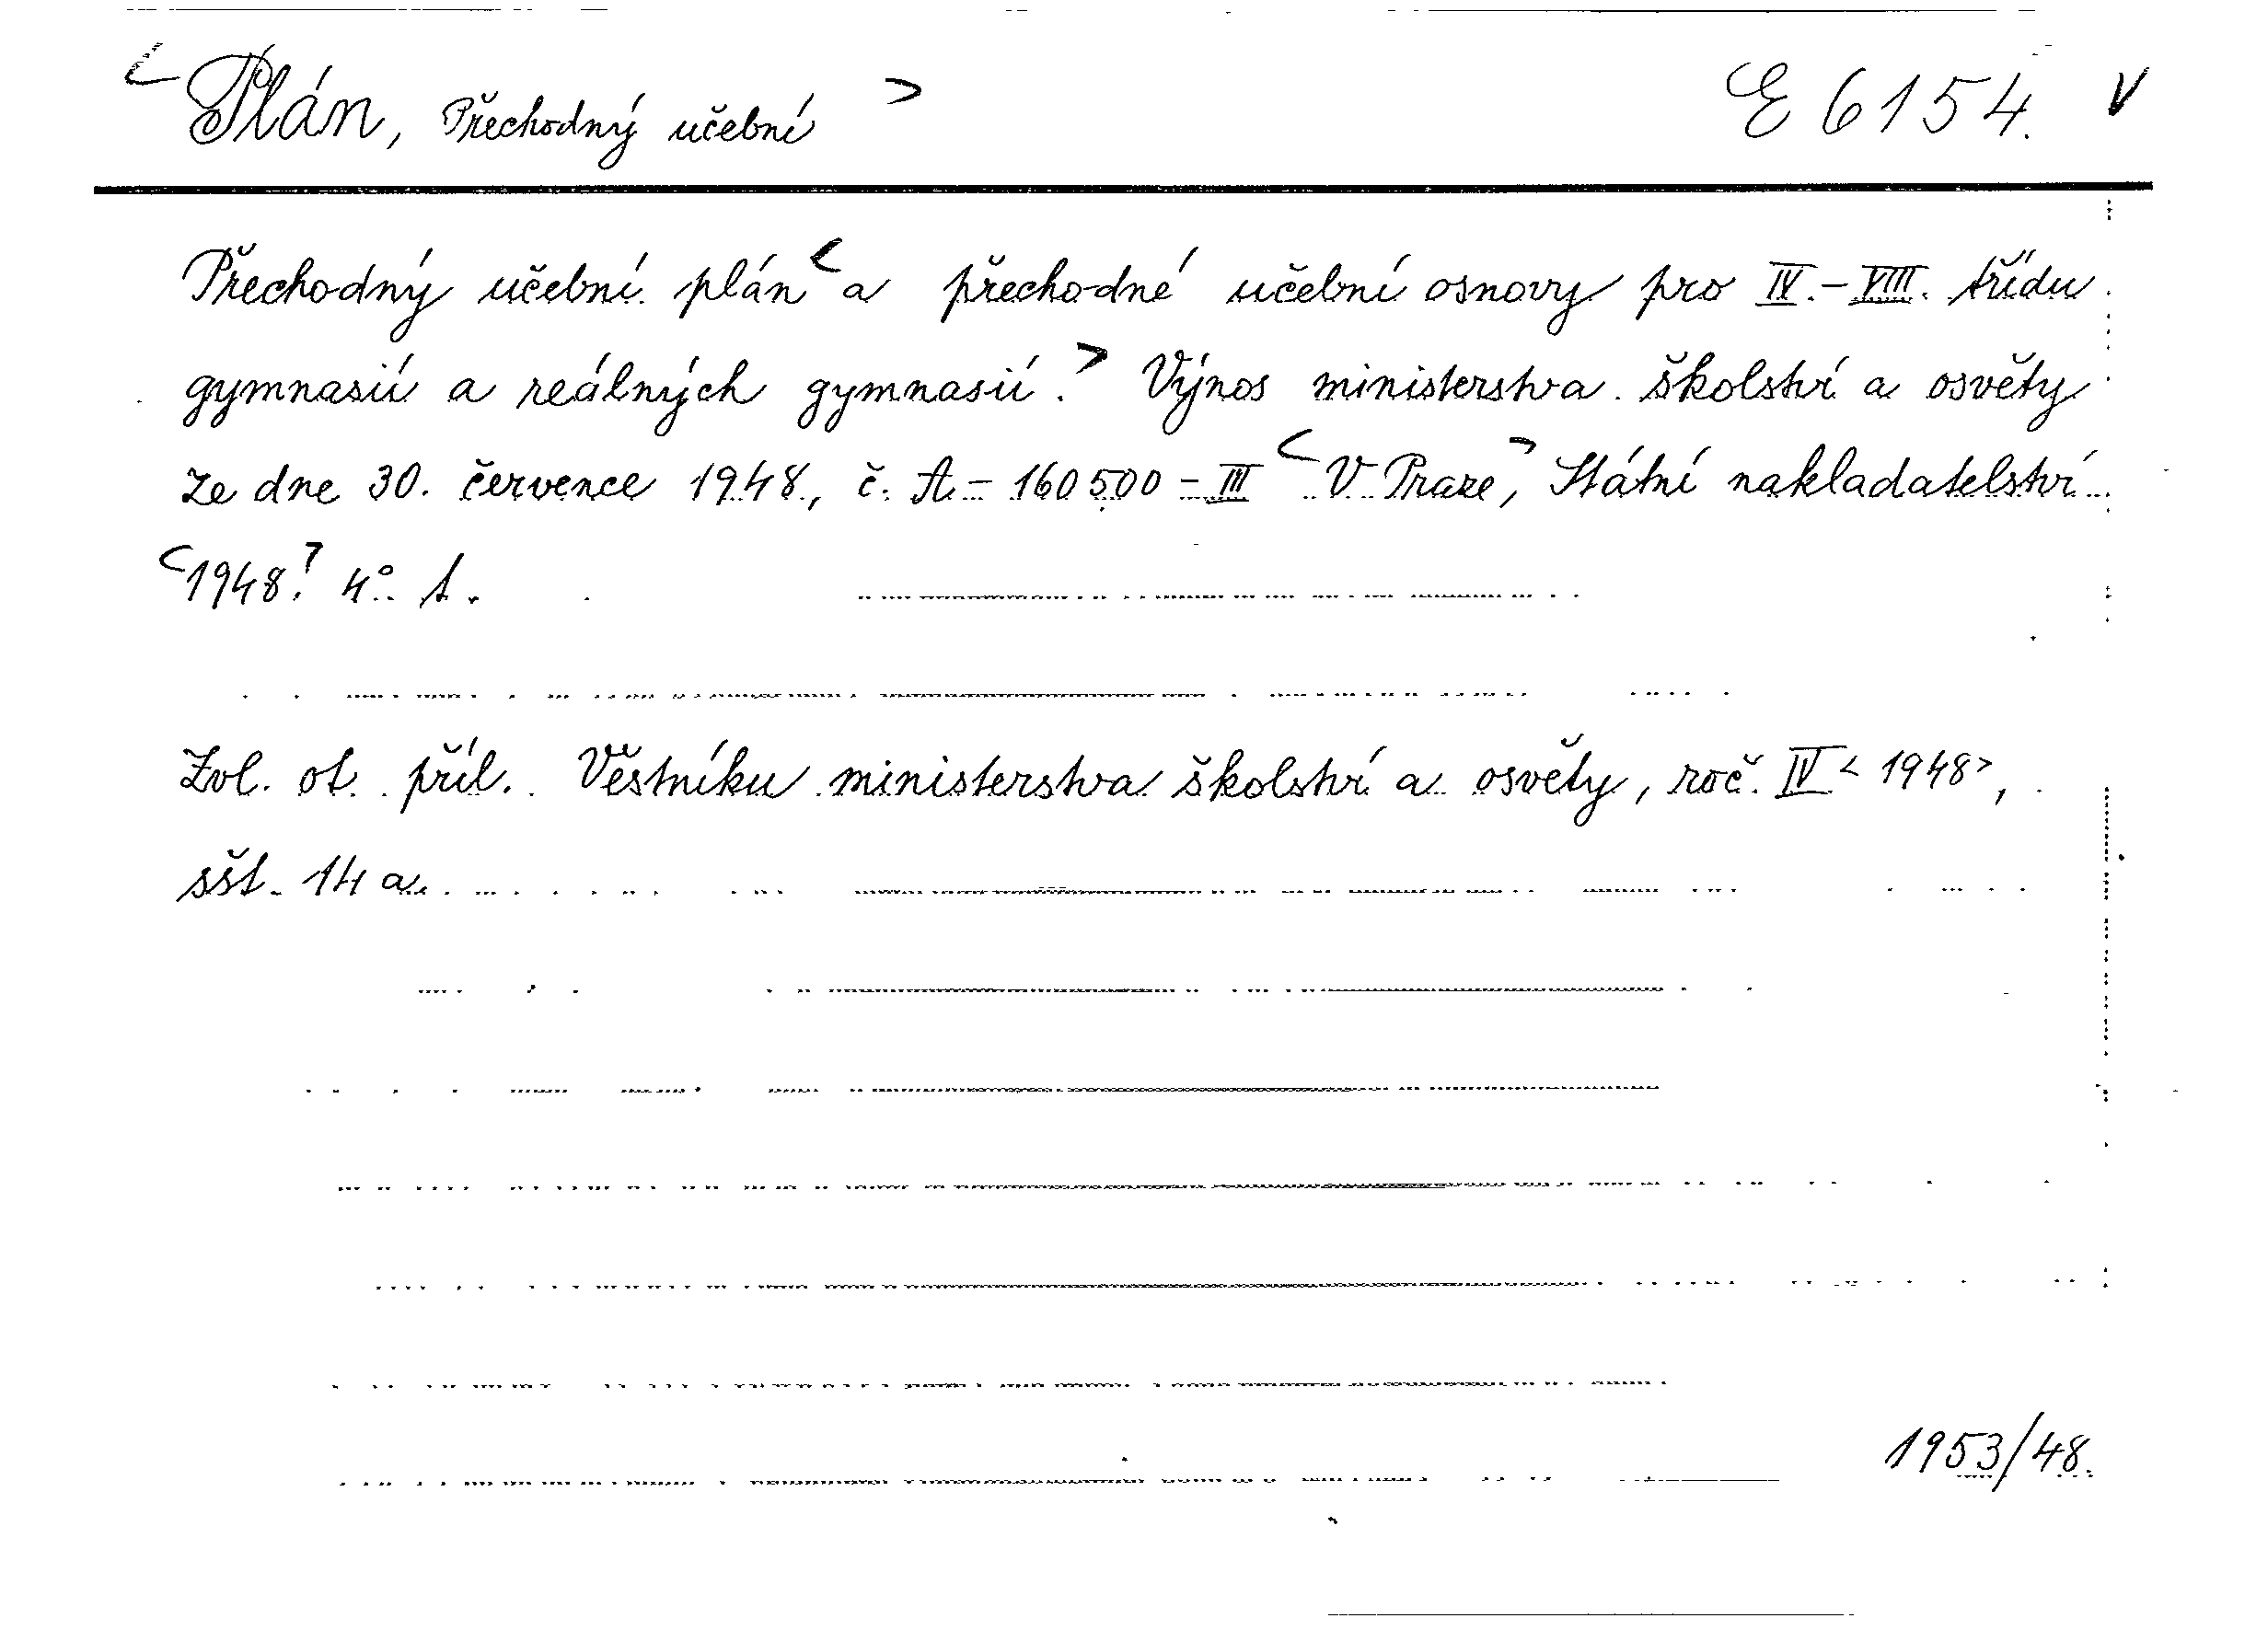 <Plán, Přechodný učební> E 6154. V
Přechodný učební plán <a přechodné učební osnovy pro IV.-VIII. třídu
gymnasií a reálných gymnasií.> Výnos ministerstva školství a osvěty
ze dne 30. července 1948, č. A - 160500 - III <V Praze>, Státní nakladatelství
<1948.> 4° 1.
Zvl. ot. příl. Věstníku ministerstva školství a osvěty, roč. IV <1948>,
sšt. 14 a.
1953/48.